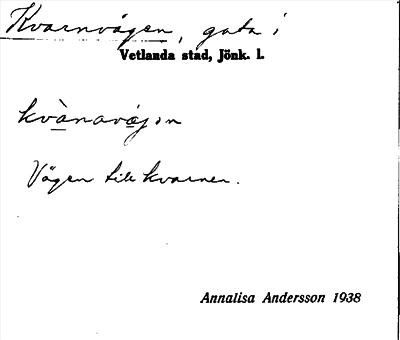 Kvarnvägen, gata i
Vetlanda stad, Jönk. l.
kvànavǫjən
Vägen till kvarnen.
Annalisa Andersson 1938